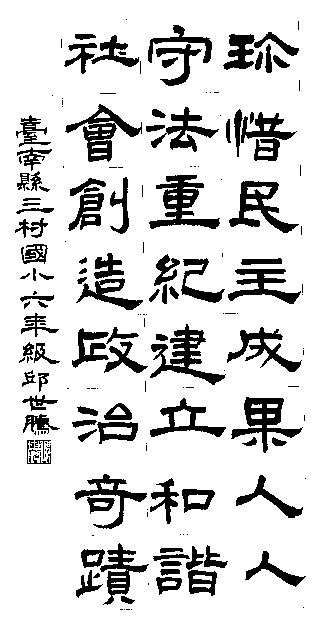 珍惜民主成果人人
守法重紀建立和諧
社會創造政治奇蹟
臺南縣三村國小六年級邱世騰